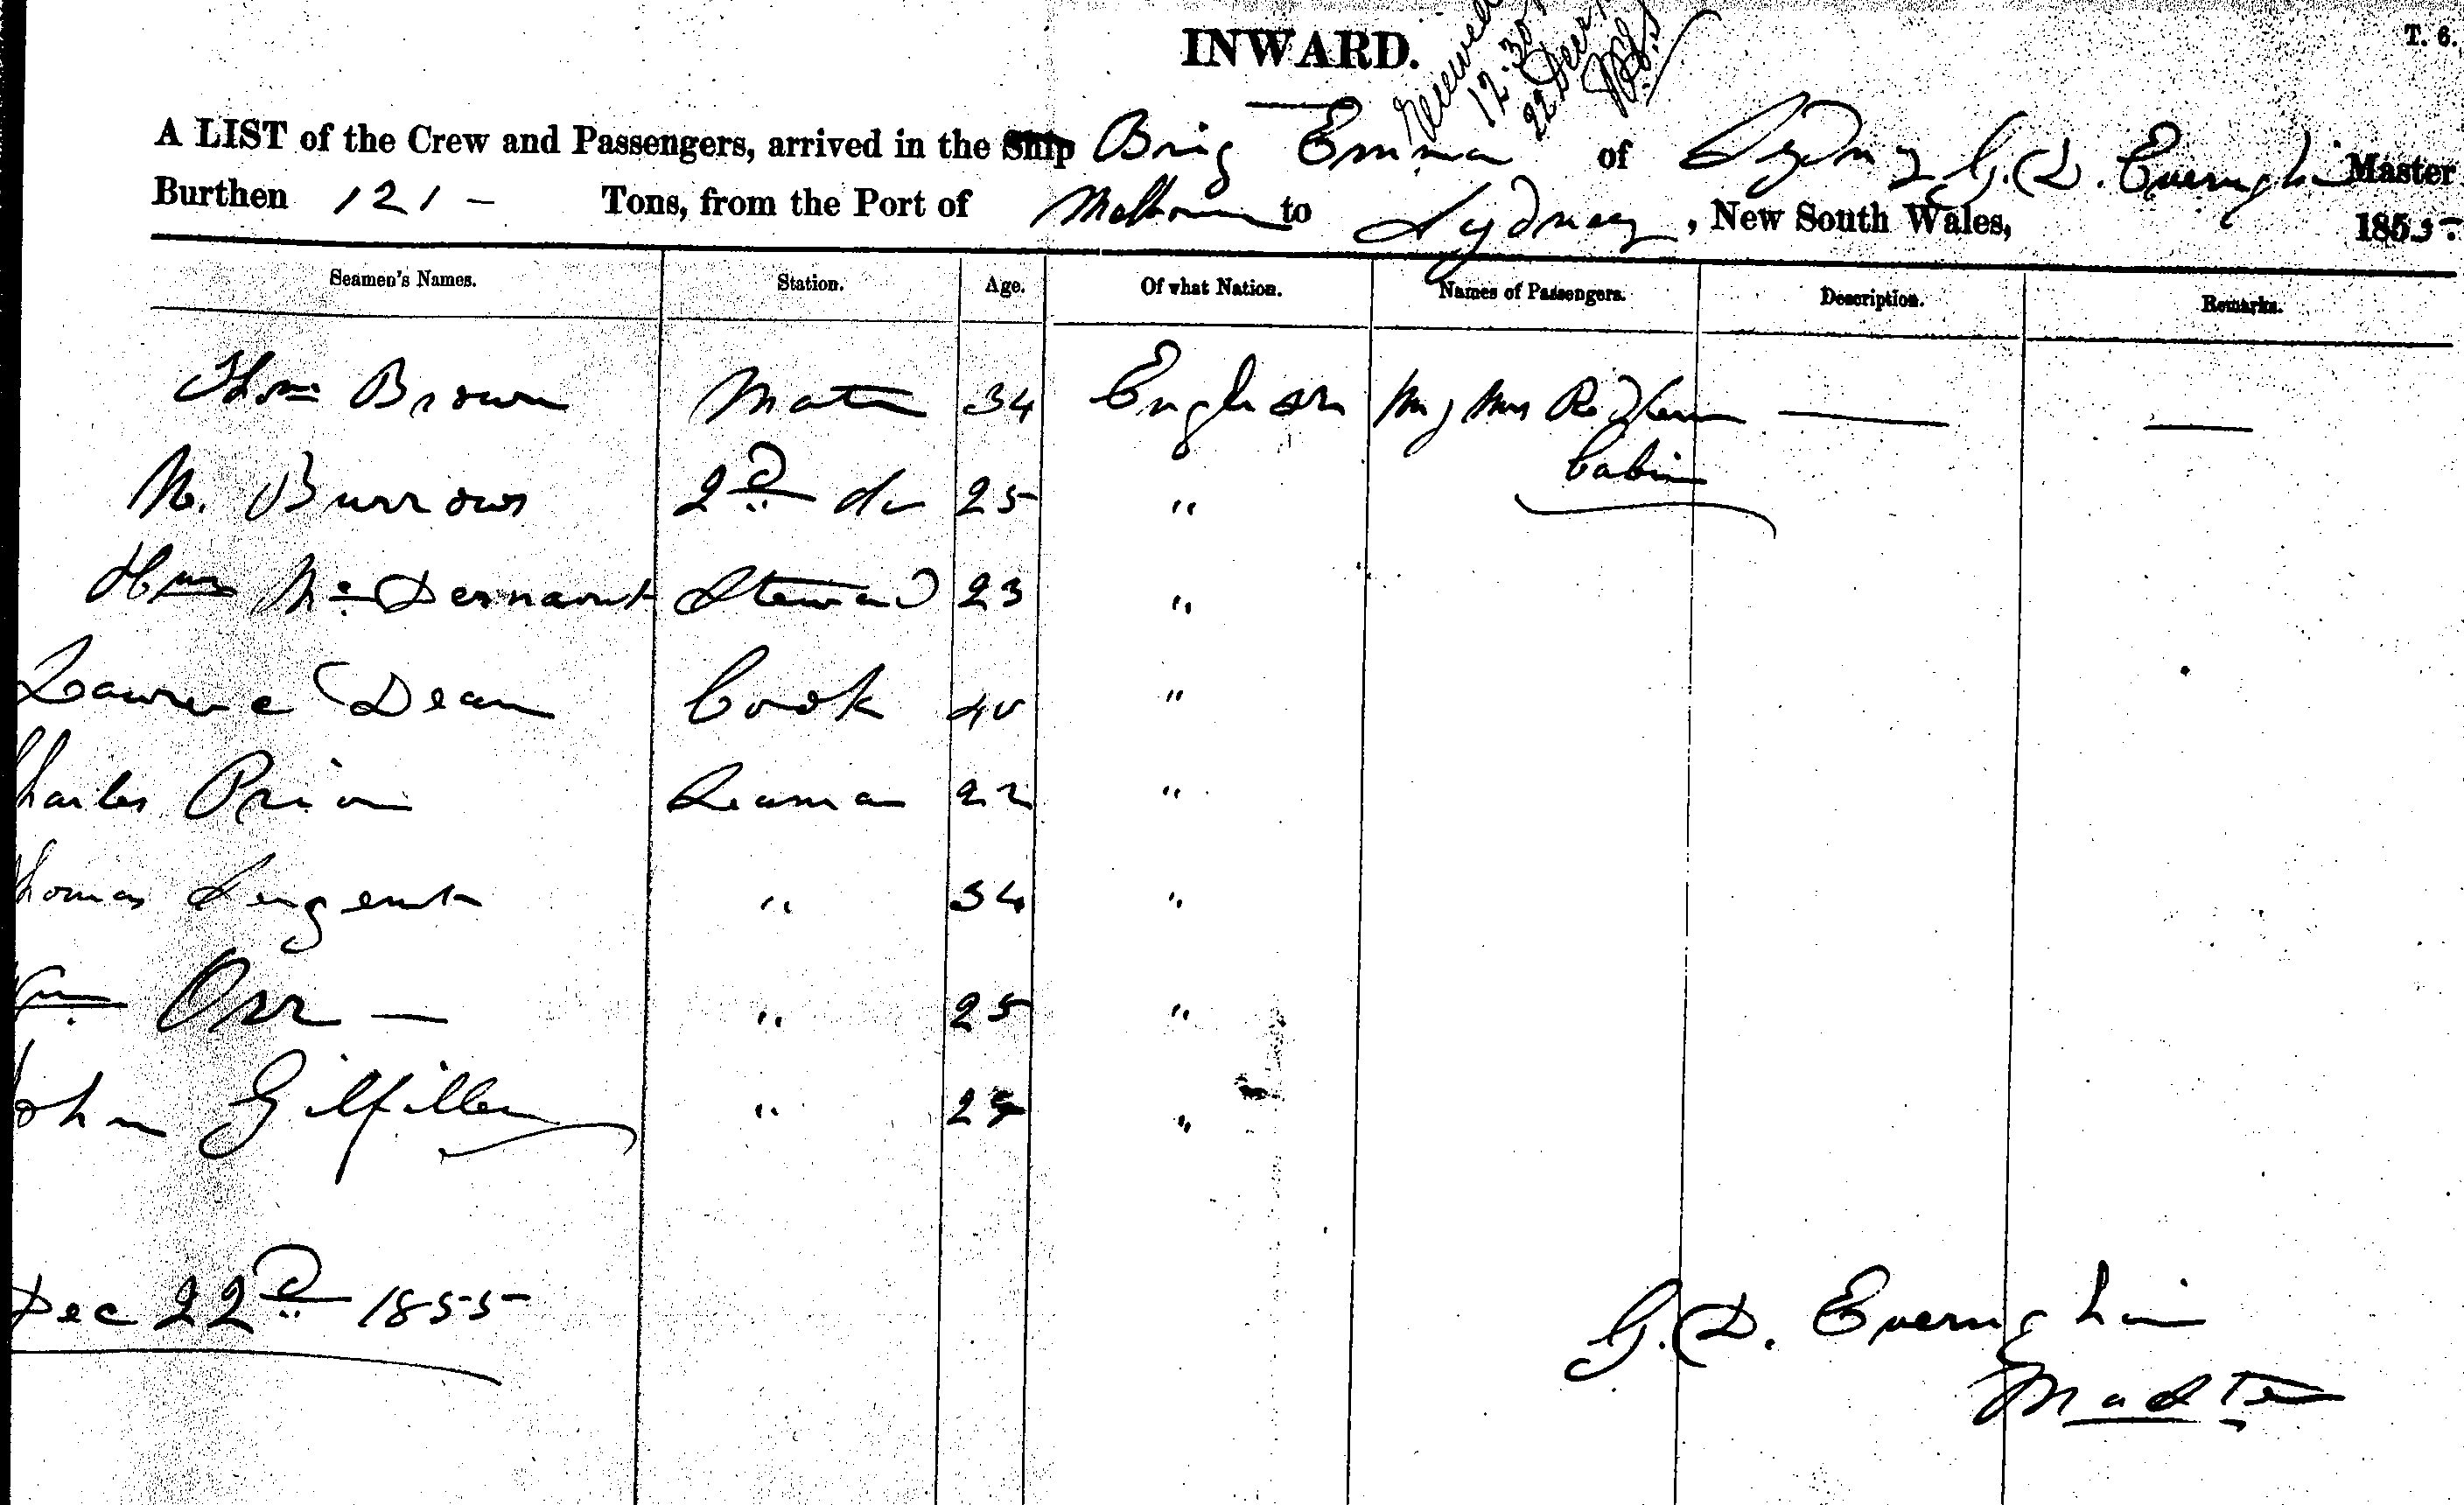 INWARD.
T. 6.
Received
12.30
22 Decr
A LIST of the Crew and Passengers, arrived in the Ship Brig Emma of Sydney G. D. Everingham Master
Burthen 121 - Tons, from the Port of Melbourne to Sydney, New South Wales, 1855.
Seamen's Names. Station. Age. Of what Nation. Names of Passengers. Description. Remarks.
Thos Brown Mate 34 English Mr & Mrs — —
Cabin
M. Burrows 2d do 25 "
McDermont Steward 23 "
Lawrence Dean Cook 40 "
Charles Prior Seaman 22 "
Thomas Sergent " 34 "
Wm Orr — " 25 "
John Gilfillan " 25 "
Dec 22d 1855
G. D. Everingham
Master